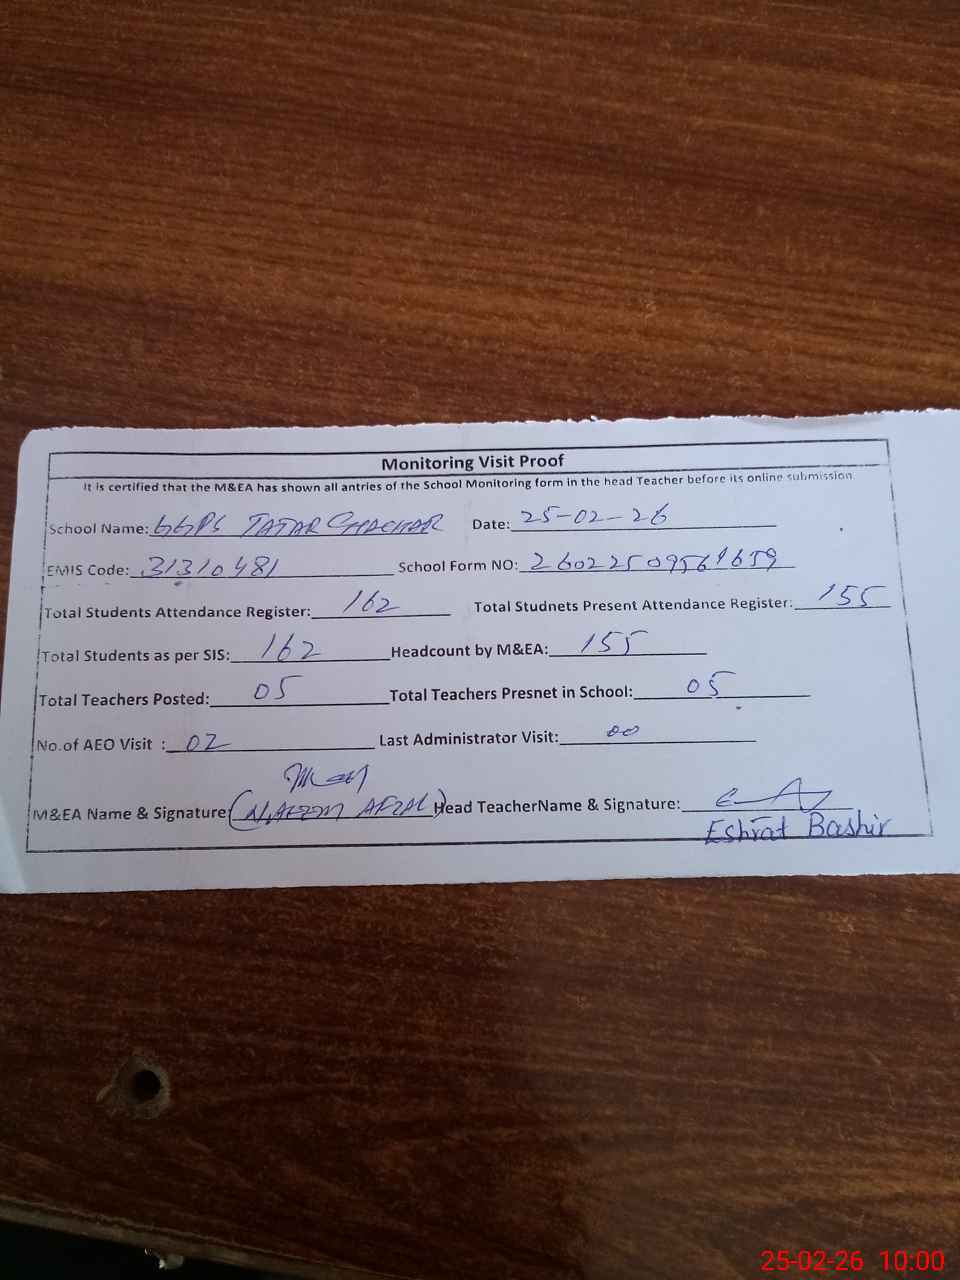 Monitoring Visit Proof
It is certified that the M&EA has shown all antries of the School Monitoring form in the head Teacher before its online submission
School Name: GGPS TATAR CHACHAR Date: 25-02-26
EMIS Code: 31310481 School Form NO:
Total Students Attendance Register: 162 Total Studnets Present Attendance Register: 155
Total Students as per SIS: 162 Headcount by M&EA: 155
Total Teachers Posted: 05 Total Teachers Presnet in School: 05
No.of AEO Visit : 02 Last Administrator Visit: 00
M&EA Name & Signature (NAEEM AFZAL) Head TeacherName & Signature:
Eshrat Bashir
25-02-26 10:00